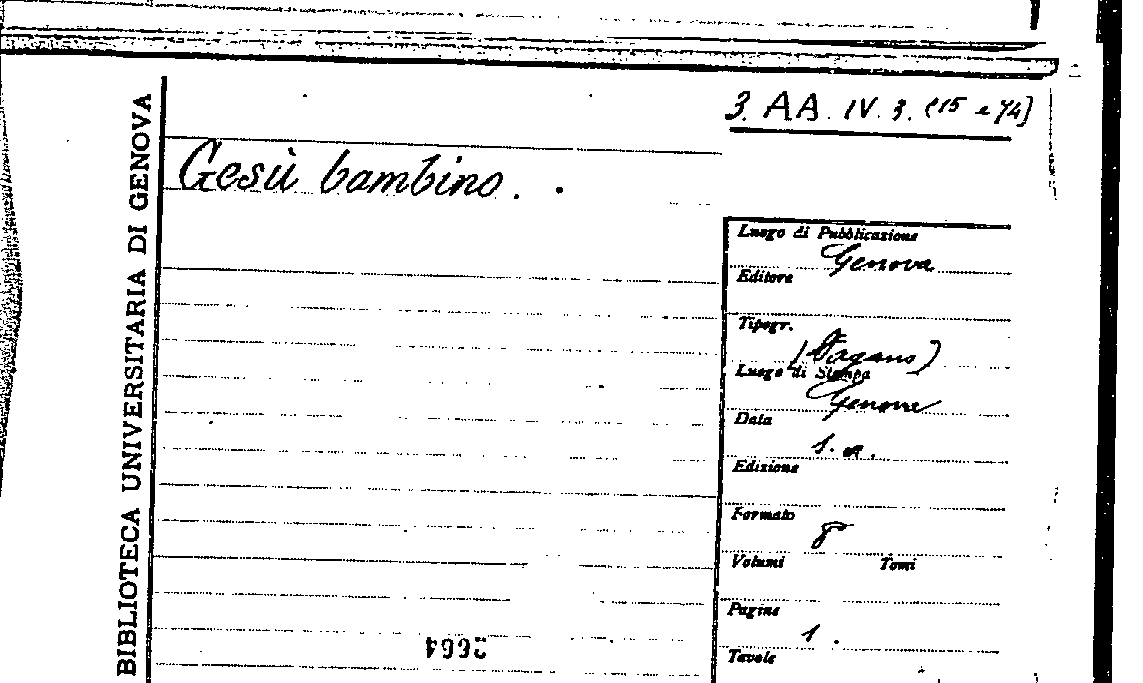 BIBLIOTECA UNIVERSITARIA DI GENOVA
3. AA. IV. 3. (15 e 74)
Gesù bambino.
Luogo di Pubblicazione
Genova
Editore
Tipogr.
Luogo di Stampa
Genova
Data
s. a.
Edizione
Formato
8
Volumi Tomi
Pagine
1.
Tavole
2664